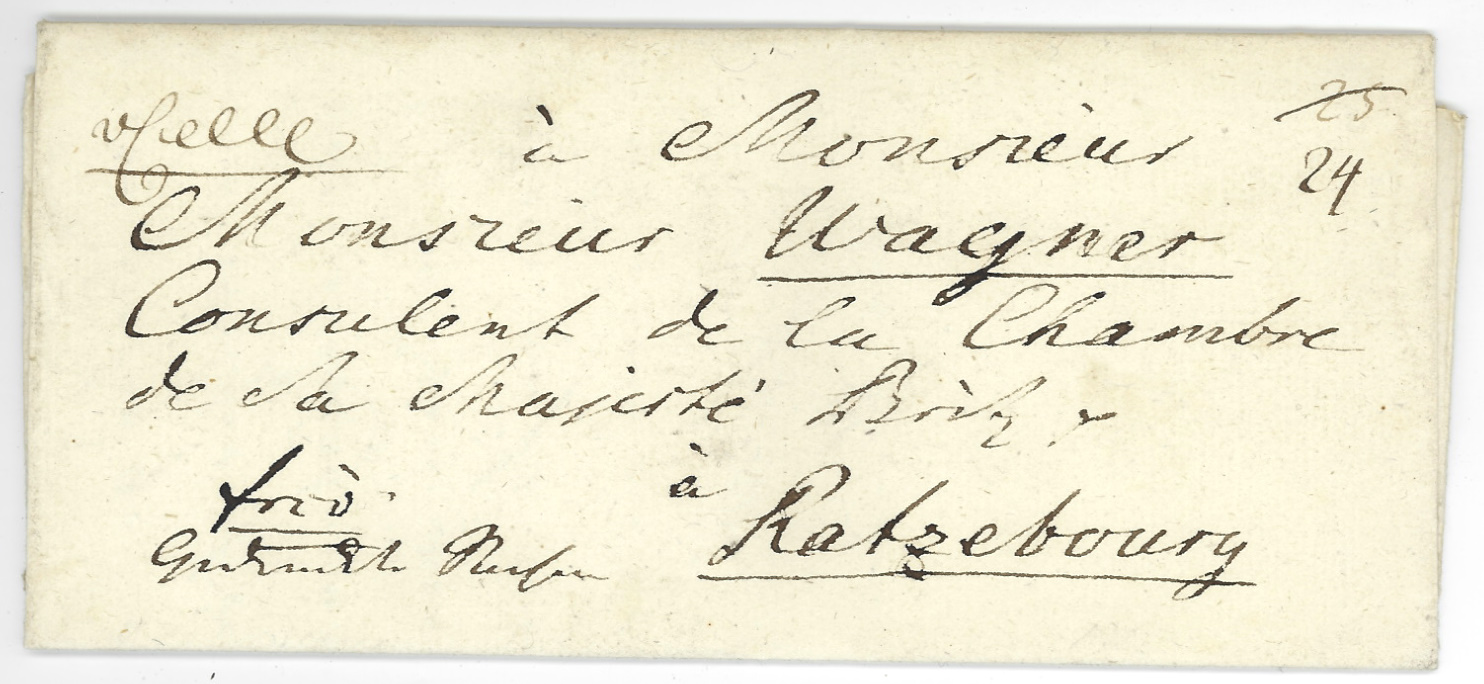 v Celle
25
24
à Monsieur
Monsieur Wagner
Consulent de la Chambre
de Sa Majesté Brit
à
Ratzebourg